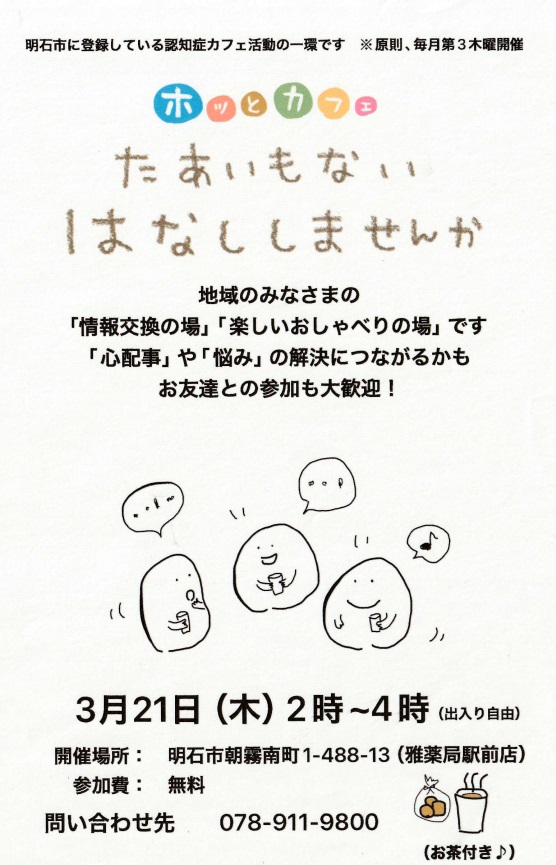 明石市に登録している認知症カフェ活動の一環です　※原則、毎月第3木曜開催
ホッとカフェ
たあいもない
はなししませんか
地域のみなさまの
「情報交換の場」「楽しいおしゃべりの場」です
「心配事」や「悩み」の解決につながるかも
お友達との参加も大歓迎！
3月21日（木）2時~4時（出入り自由）
開催場所：　明石市朝霧南町1-488-13（雅薬局駅前店）
参加費：　無料
問い合わせ先　078-911-9800
（お茶付き♪）